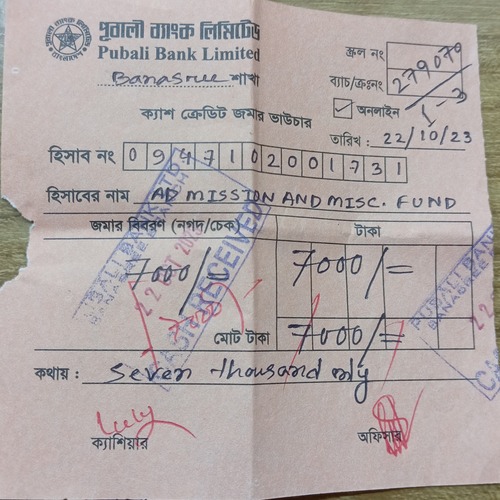 পূবালী ব্যাংক লিমিটেড
Pubali Bank Limited
Banasree শাখা
স্ক্রল নং
279079
ব্যাচ/ক্রঃনং
1-3
অনলাইন
ক্যাশ ক্রেডিট জমার ভাউচার
তারিখ : 22/10/23
হিসাব নং 0947102001731
হিসাবের নাম AD MISSION AND MISC. FUND
জমার বিবরণ (নগদ/চেক) টাকা
7000/= 7000/=
মোট টাকা 7000/=
কথায় : Seven thousand only
PUBALI BANK LTD
BANASREE BRANCH
22 OCT 202
CASH RECEIVED
PUBALI BAN
BANASREE
22
CA
ক্যাশিয়ার অফিসার